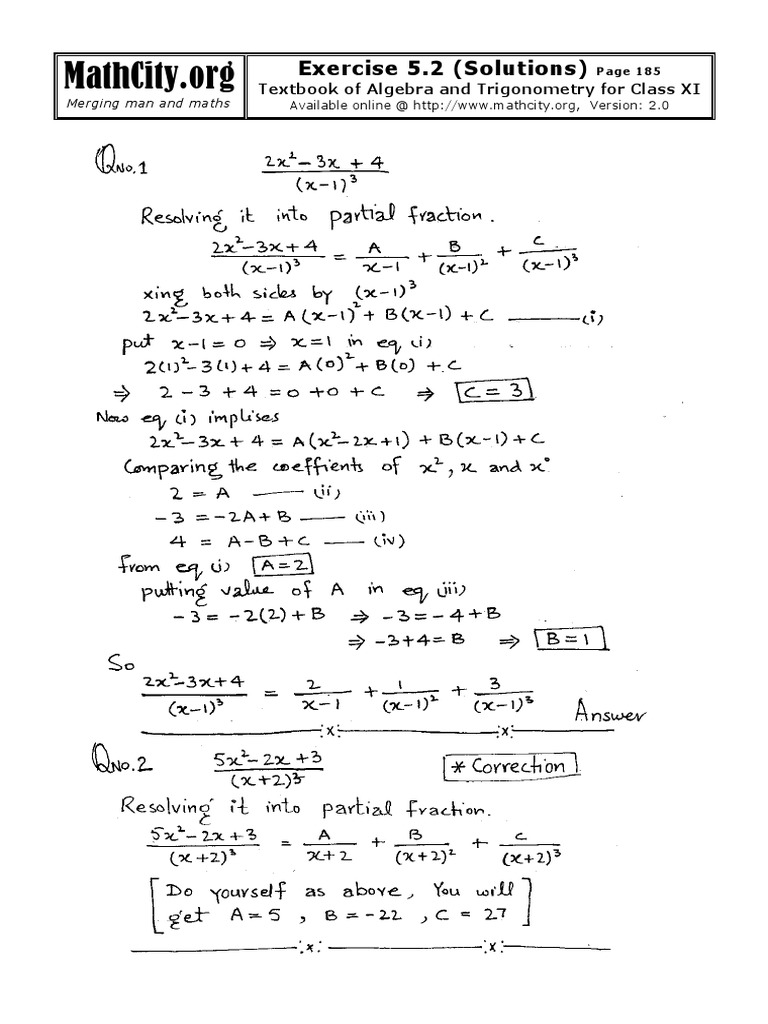 MathCity.org
Merging man and maths
Exercise 5.2 (Solutions) Page 185
Textbook of Algebra and Trigonometry for Class XI
Available online @ http://www.mathcity.org, Version: 2.0
QNo.1 (2x²-3x+4)/(x-1)³
Resolving it into partial fraction.
(2x²-3x+4)/(x-1)³ = A/(x-1) + B/(x-1)² + C/(x-1)³
xing both sides by (x-1)³
2x²-3x+4 = A(x-1)² + B(x-1) + C ——— (i)
put x-1=0 ⇒ x=1 in eq (i)
2(1)²-3(1)+4 = A(0)² + B(0) + C
⇒ 2-3+4 = 0+0+C ⇒ C=3
Now eq (i) implises
2x²-3x+4 = A(x²-2x+1) + B(x-1) + C
Comparing the coeffients of x², x and x°
2 = A ——— (ii)
-3 = -2A+B ——— (iii)
4 = A-B+C ——— (iv)
from eq (i) A=2
putting value of A in eq (iii)
-3 = -2(2)+B ⇒ -3=-4+B
⇒ -3+4=B ⇒ B=1
So
(2x²-3x+4)/(x-1)³ = 2/(x-1) + 1/(x-1)² + 3/(x-1)³
Answer
:x: :x:
QNo.2 (5x²-2x+3)/(x+2)³ * Correction
Resolving it into partial fraction.
(5x²-2x+3)/(x+2)³ = A/(x+2) + B/(x+2)² + C/(x+2)³
[Do yourself as above, You will
get A=5, B=-22, C=27]
:x: :x: